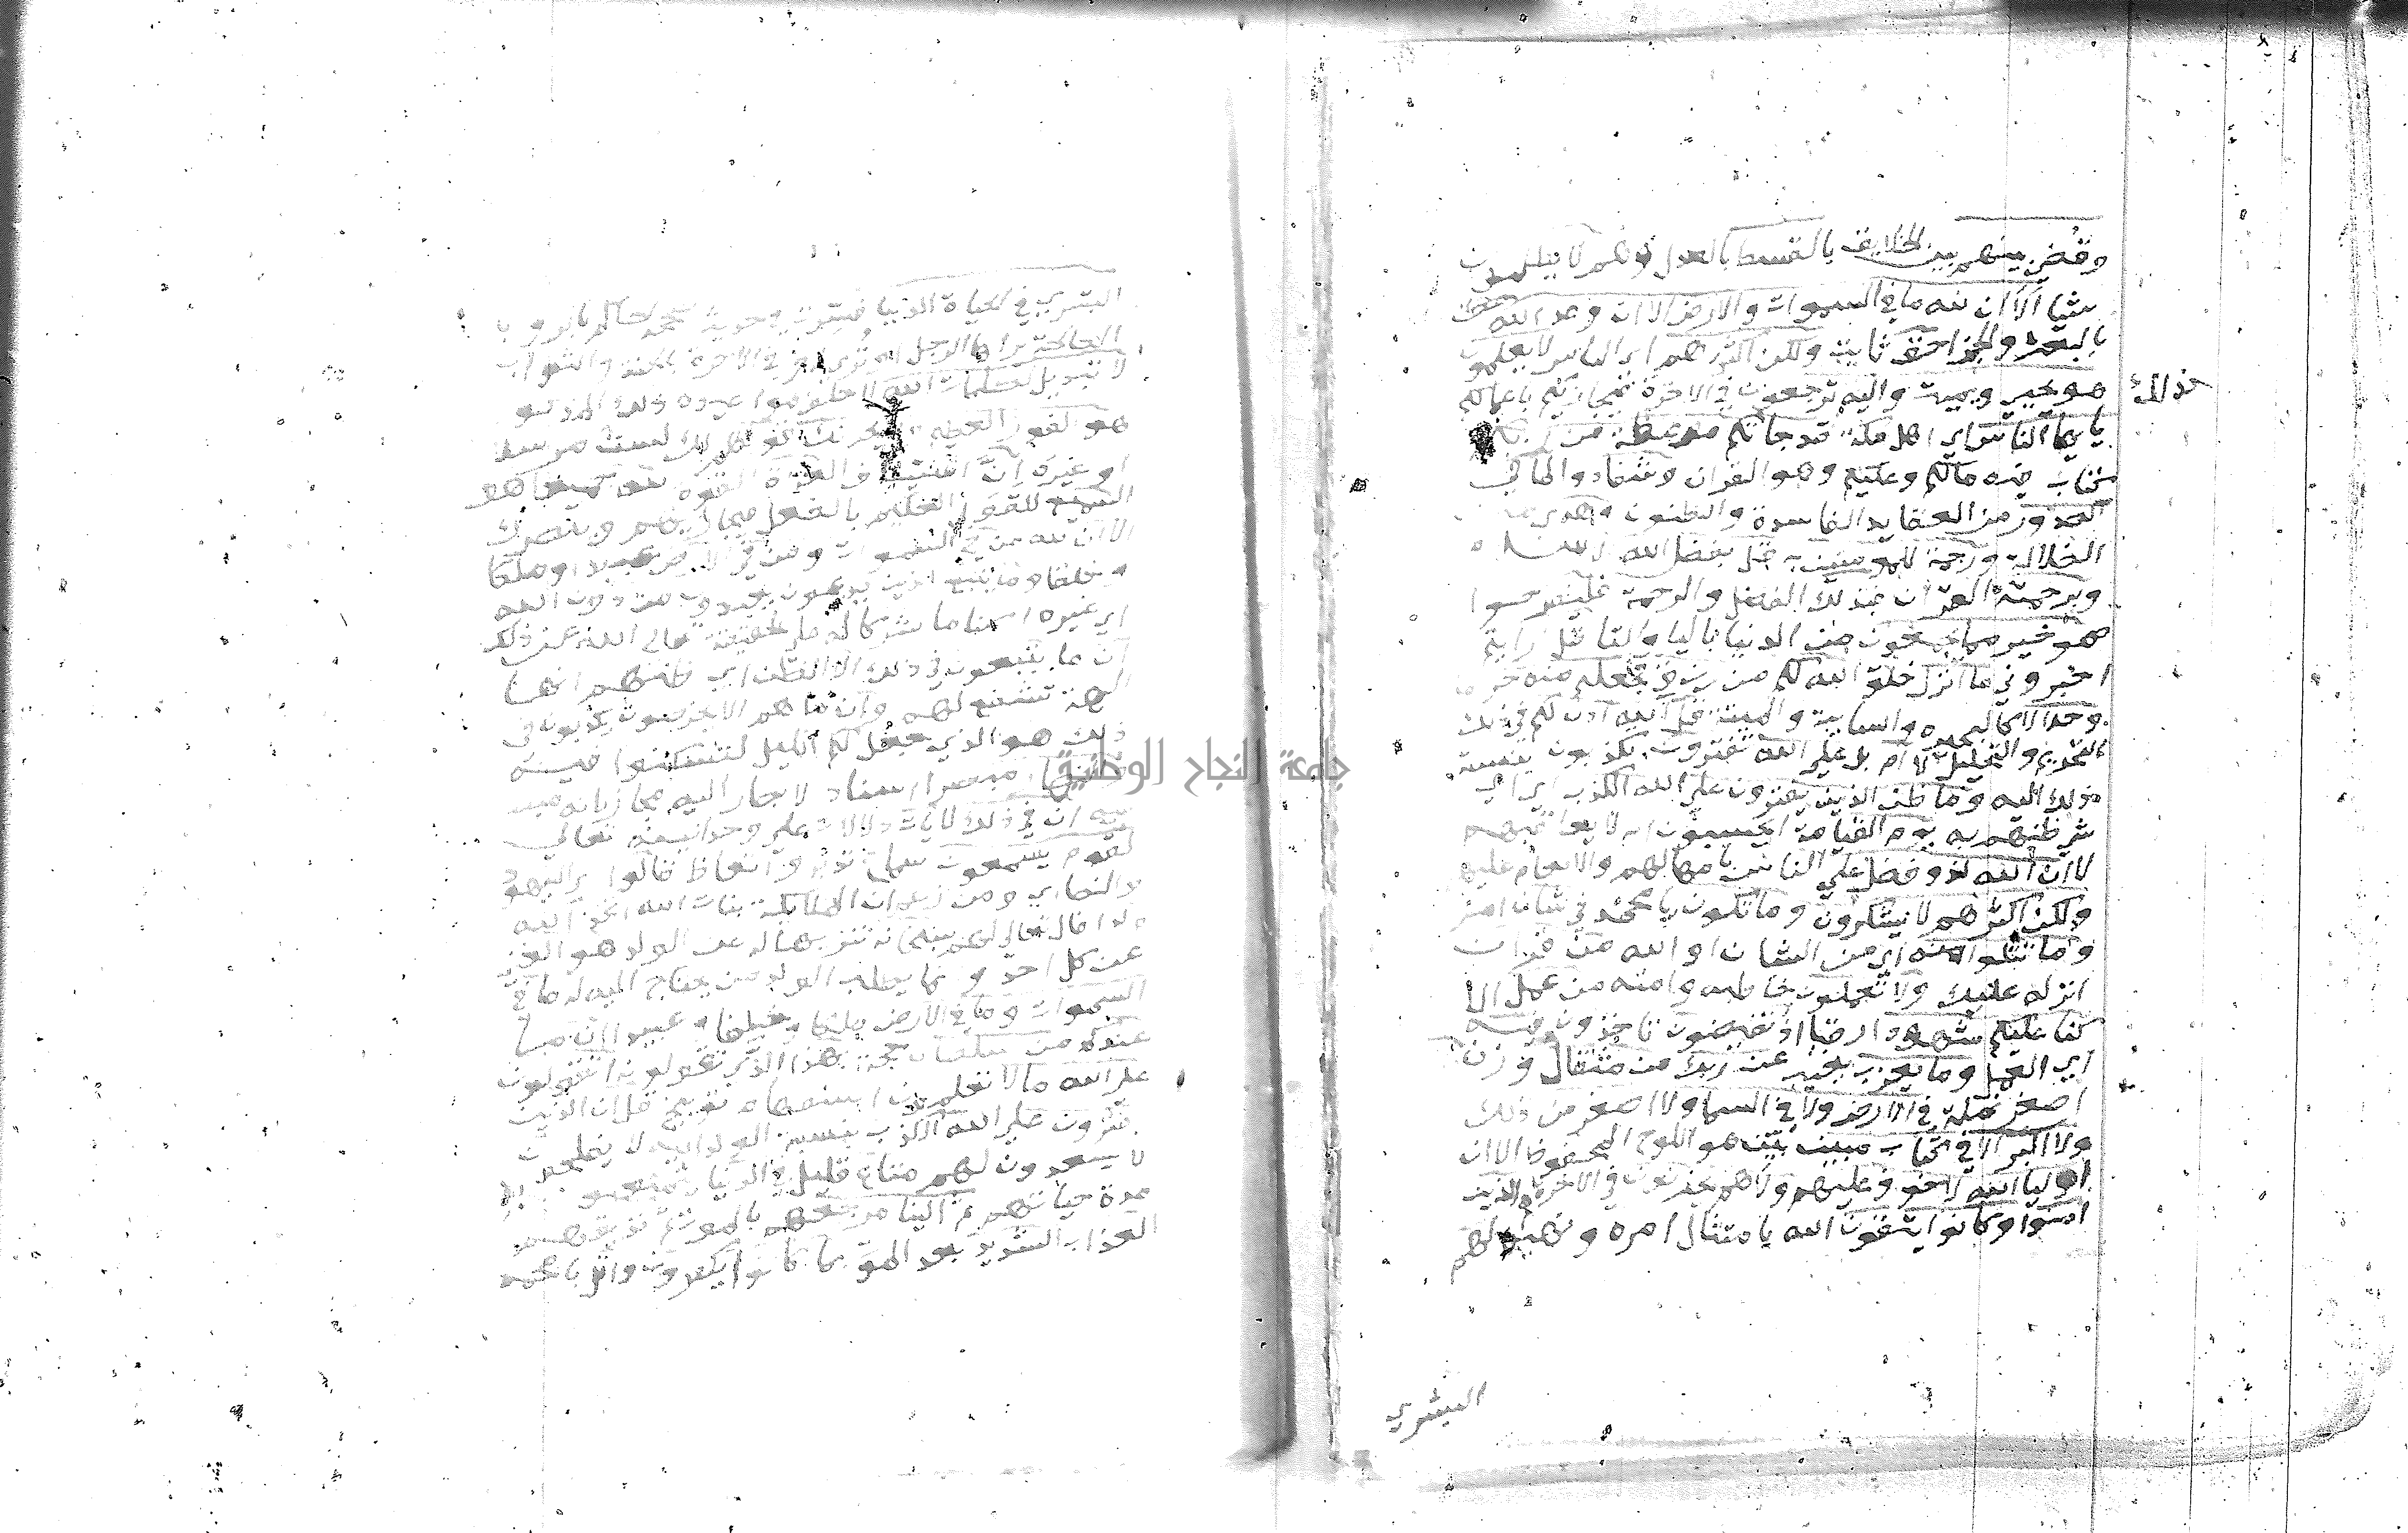 وقضي بينهم بين الخلايق بالقسط بالعدل وهم لا يظلمون
شيا الا ان لله ما في السموات والارض الا ان وعد الله
بالبعث والجزا حق ثابت ولكن اكثرهم اي الناس لا يعلمون
ذلك
هو يحيي ويميت واليه ترجعون في الاخرة فيجازيكم باعمالكم
يا يها الناس اي اهل مكة قد جاتكم موعظة من ربكم
كتاب فيه مالكم وعليكم وهو القران وشفاء دوا لما في
الصدور من العقايد الفاسدة والظنون وهدي من
الضلالة ورحمة للمومنين به قل بفضل الله الاسلام
وبرحمته القران فبذلك الفضل والرحمة فليفرحوا
هو خير مما يجمعون من الدنيا باليا والتا قل رايتم
اخبروني ما انزل خلق الله لكم من رزق فجعلتم منه حراما
وحلالا كالبحيرة والسايبة والميتة قل آلله اذن لكم في ذلك
التحريم والتحليل لا ام بل علي الله تفترون تكذبون بنسبة
ذلك اليه وما ظن الذين يفترون علي الله الكذب اي اي
شي ظنهم به يوم القيامة ايحسبون انه لا يعاقبهم
لا ان الله لذو فضل علي الناس بامهالهم والانعام عليهم
ولكن اكثرهم لا يشكرون وما تكون يا محمد في شان امر
وما تتلوا منه اي من الشان او الله من قران
انزله عليك ولا تعملون خاطبه وامته من عمل الا
كنا عليكم شهودا رقبا اذ تفيضون تاخذون فيه
اي العمل وما يعزب يغيب عن ربك من مثقال وزن
اصغر نملة في الارض ولا في السما ولا اصغر من ذلك
ولا اكبر الا في كتاب مبين بين هو اللوح المحفوظ الا ان
اوليا الله لا خوف عليهم ولا هم يحزنون في الاخرة هم الذين
امنوا وكانوا يتقون الله بامتثال امره ونهيه لهم
البشري
البشري في الحياة الدنيا فسرت في حديث صححه الحاكم بالرويا
الصالحة يراها الرجل او تري له وفي الاخرة بالجنة والثواب
لا تبديل لكلمات الله لا خلف لمواعيده ذلك المذكور
هو الفوز العظيم ولا يحزنك قولهم لك لست مرسلا
او غيره ان استيناف العزة القوة لله جميعا هو
السميع للقول العليم بالفعل فيجازيهم وينصرك
الا ان لله من في السموات ومن في الارض عبيدا وملكا
وخلقا وما يتبع الذين يدعون يعبدون من دون الله
اي غيره اصناما شركا له علي الحقيقة تعالي الله عن ذلك
ان ما يتبعون في ذلك الا الظن اي ظنهم انها
الهة تشفع لهم وان ما هم الا يخرصون يكذبون في
ذلك هو الذي جعل لكم الليل لتسكنوا فيه
والنهار مبصرا اسناد الابصار اليه مجاز لانه يبصر
فيه ان في ذلك لايات دلالات علي وحدانيته تعالي
لقوم يسمعون سماع تدبر واتعاظ قالوا اي اليهود
والنصاري ومن زعم ان الملائكة بنات الله اتخذ الله
ولدا قال تعالي لهم سبحانه تنزيها له عن الولد هو الغني
عن كل احد وانما يطلب الولد من يحتاج اليه له ما في
السموات وما في الارض ملكا وخلقا وعبيدا ان ما
عندكم من سلطان حجة بهذا الذي تقولونه اتقولون
علي الله ما لا تعلمون استفهام توبيخ قل ان الذين
يفترون علي الله الكذب بنسبة الولد اليه لا يفلحون
لا يسعدون لهم متاع قليل في الدنيا يتمتعون به
مدة حياتهم ثم الينا مرجعهم بالموت ثم نذيقهم
العذاب الشديد بعد الموت بما كانوا يكفرون واتل يا محمد
جامعة النجاح الوطنية